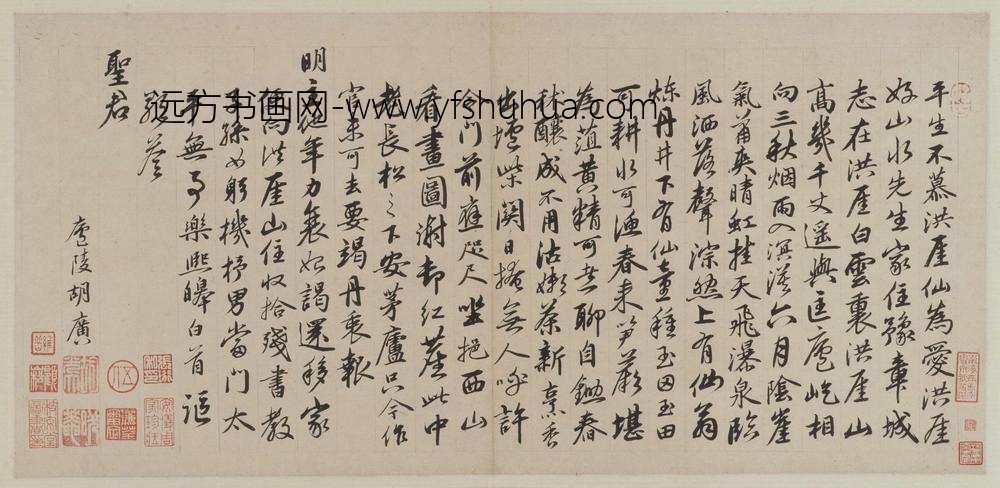 平生不慕洪崖仙為愛洪崖
好山水先生家住豫章城
志在洪崖白雲裏洪崖山
高幾千丈遥與匡廬屹相
向三秋烟雨入溟濛六月陰崖
氣蕭爽晴虹挂天飛瀑泉臨
風洒落聲淙然上有仙翁
煉丹井下有仙童種玉田玉田
可耕水可漁春来笋蕨堪
為葅黄精可煮聊自鋤春
秫釀成不用沽嫩茶新烹香
出爐柴関日掩無人呼許
令門前雍咫尺坐挹西山
看畫圖謝却紅塵此中
老長松之下安茅廬只今作
官未可去要竭丹衷報
明主從年力衰始謁還移家
歸向洪崖山住收拾殘書教
子孫女躬機杼男當門太
平無事樂熙皞白首謳
歌荅
聖君
廬陵胡廣
远方书画网-www.yfshuhua.com